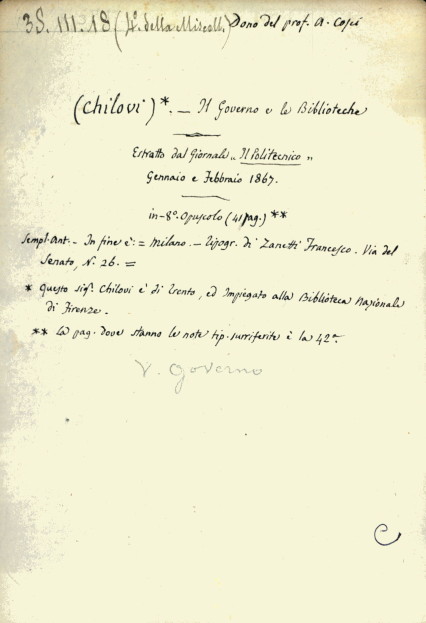 38. III. 18 (4°. della Miscell.) Dono del prof. A.
(Chilovi)*. — Il Governo e le Biblioteche
Estratto dal Giornale „ Il Politecnico „
Gennaio e Febbraio 1867.
in-8°. Opuscolo (41 pag.) **
Sempl. Ant. — In fine è: = Milano. — Tipogr. di Zanetti Francesco. Via del
Senato, N. 26. =
* Questo sigr. Chilovi è di Trento, ed Impiegato alla Biblioteca Nazionale
di Firenze.
** La pag. dove stanno le note tip. surriferite è la 42a.
V. Governo